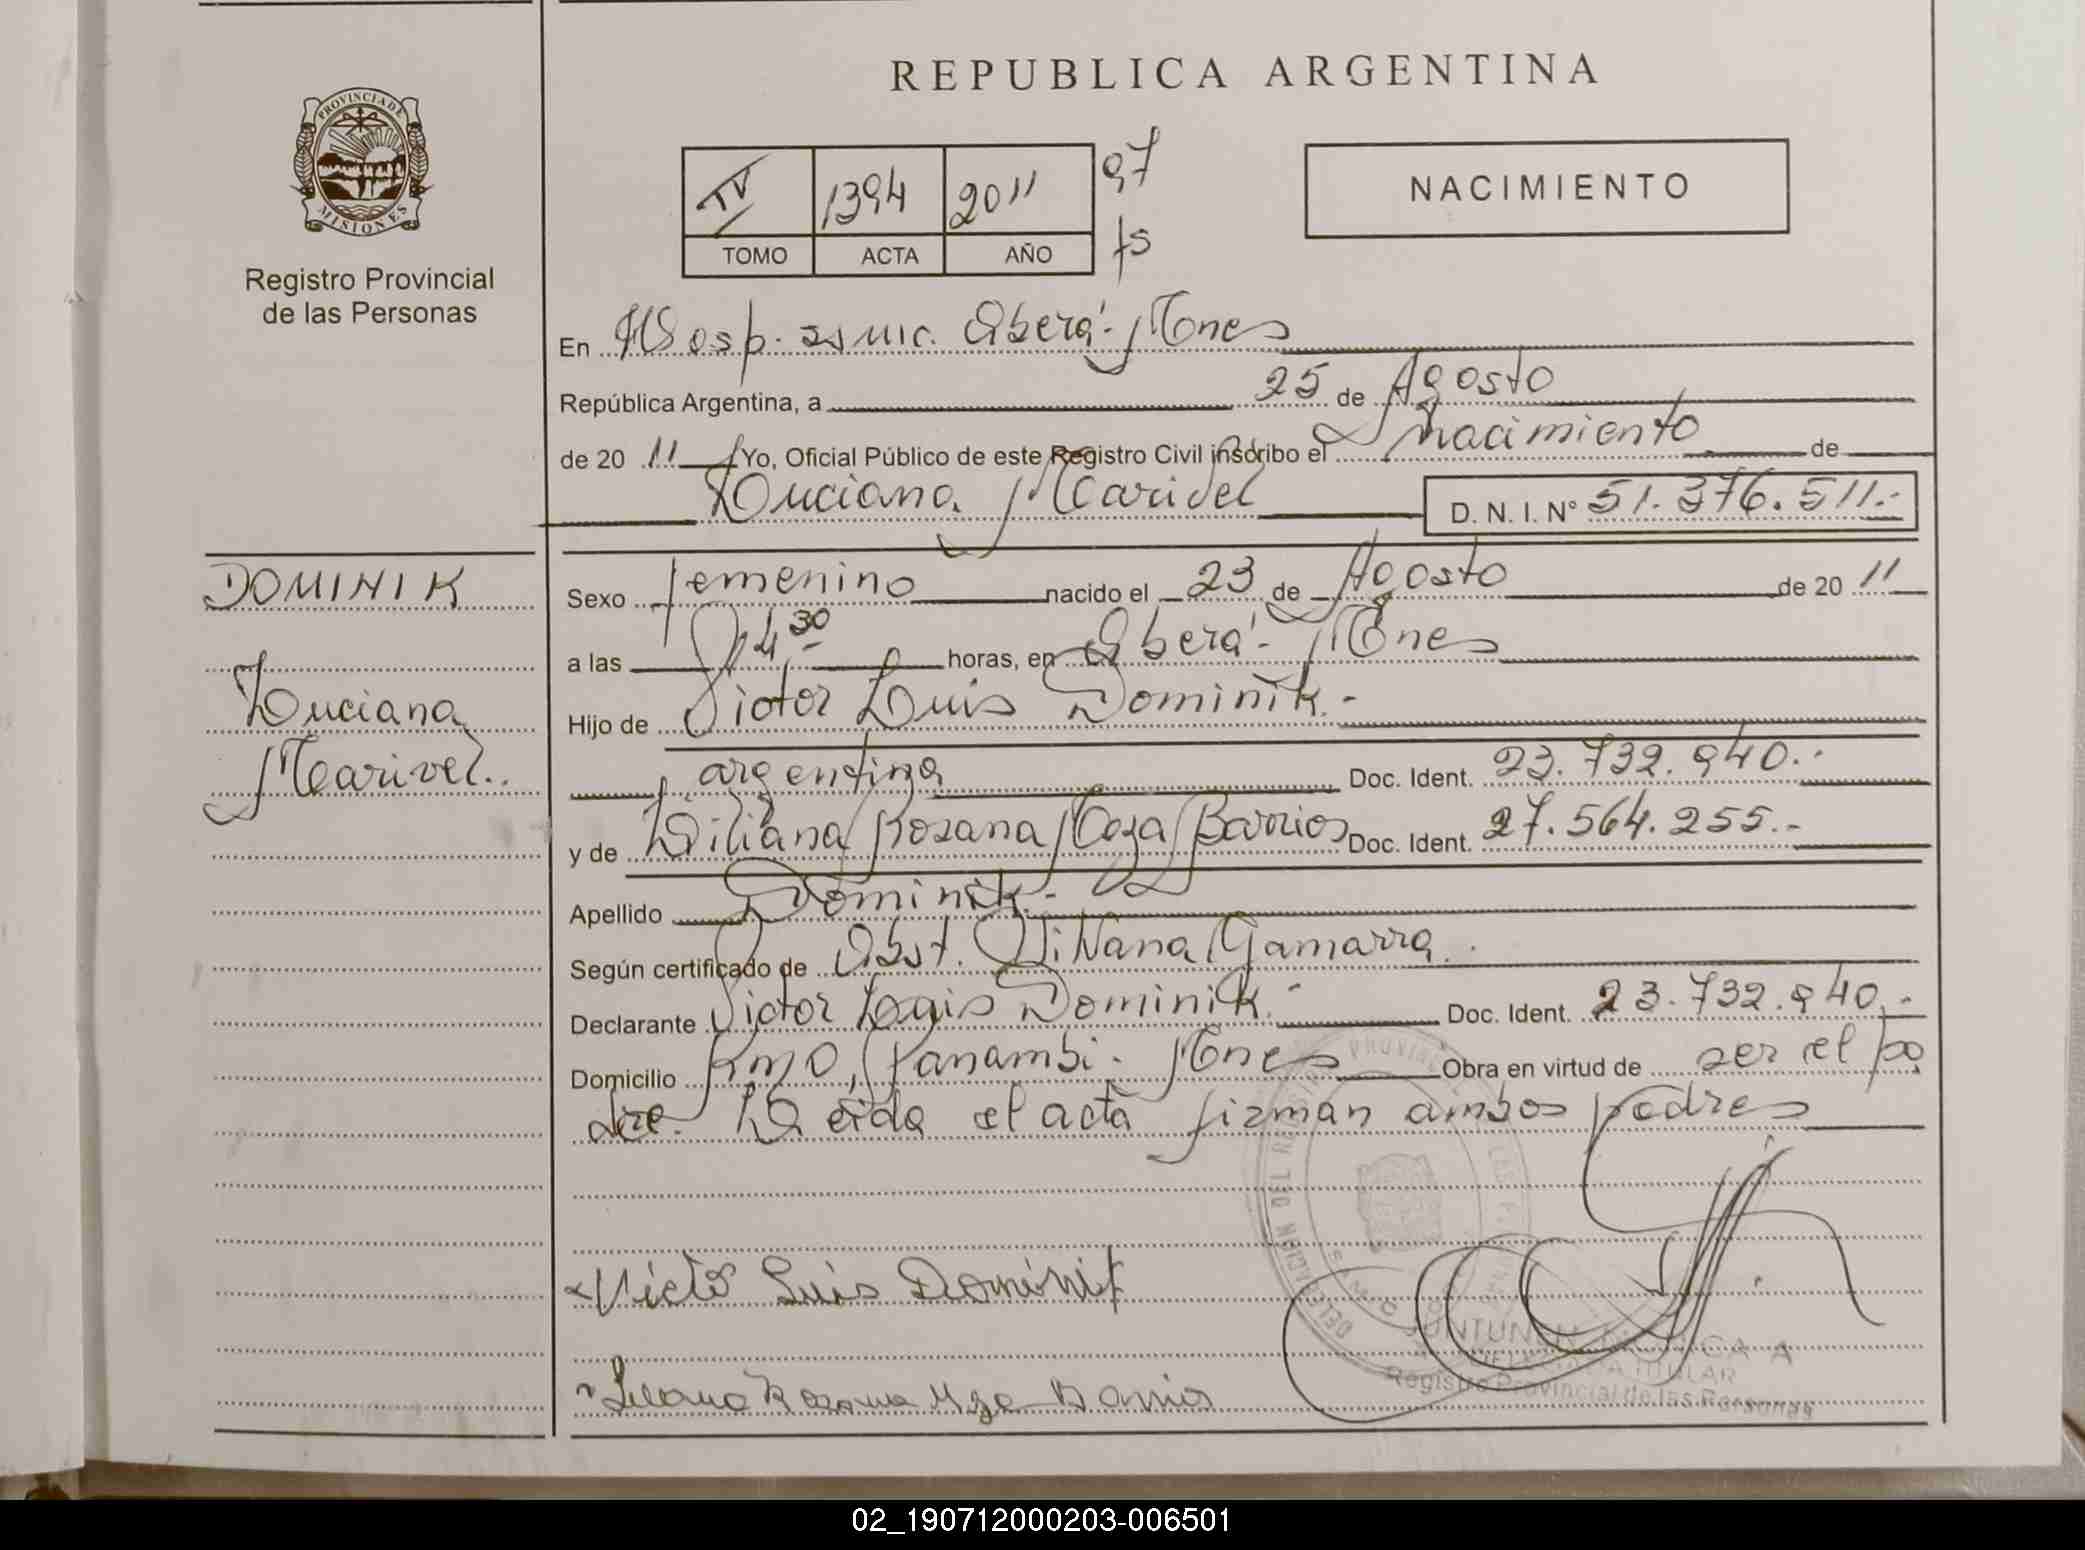 REPUBLICA ARGENTINA
PROVINCIA DE
MISIONES
Registro Provincial
de las Personas
IV 1394 2011 97
TOMO ACTA AÑO fs
NACIMIENTO
En Hosp. Oberá - Mnes
República Argentina, a 25 de Agosto
de 20 11 Yo, Oficial Público de este Registro Civil inscribo el nacimiento de
Luciana Marivel D. N. I. N° 51.376.511.-
DOMINIK
Luciana
Marivel.
Sexo femenino nacido el 23 de Agosto de 20 11
a las 14 30 horas, en Oberá - Mnes
Hijo de Victor Luis Dominik.-
argentina Doc. Ident. 23.732.940.-
y de Liliana Rosana Meza Barrios Doc. Ident. 27.564.255.-
Apellido Dominik.-
Según certificado de Obst. Viviana Gamarra.
Declarante Victor Luis Dominik.- Doc. Ident. 23.732.940.-
Domicilio Km 0, Panambi - Mnes Obra en virtud de ser el pa
dre. Leida el acta firman ambos padres
Victor Luis Dominik
Liliana Rosana Meza Barrios
TITULAR
Registro Provincial de las Personas
02_190712000203-006501